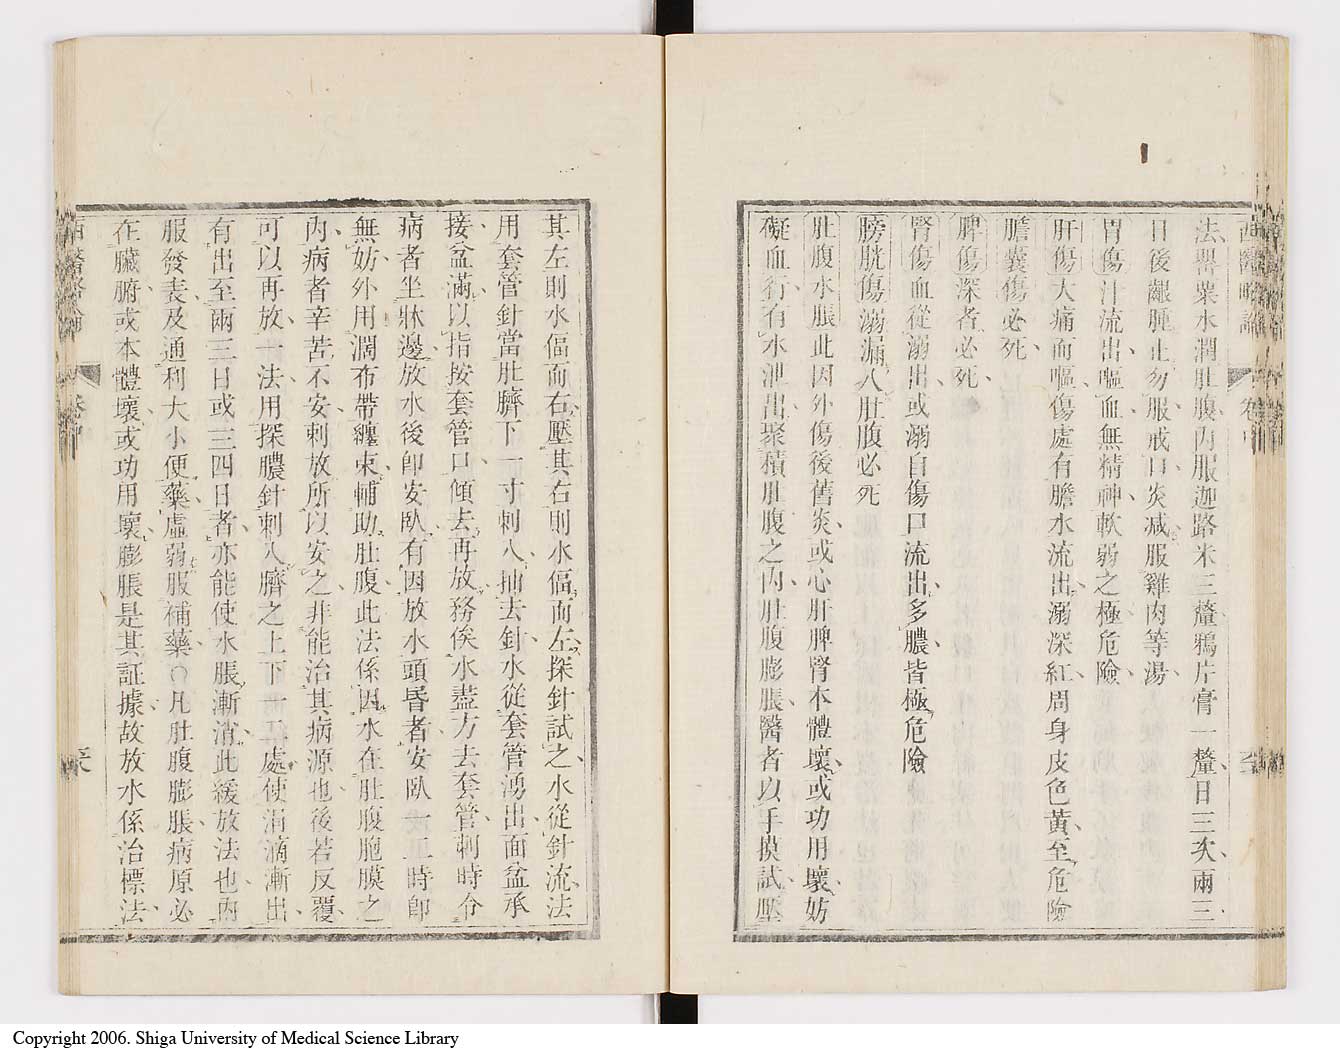 西醫略論
卷中
法罌粟水潤肚腹內服迦路米三釐鴉片膏一釐日三次兩三
日後離腫止勿服戒口炎減服雞肉等湯
胃傷汁流出嘔血無精神軟弱之極危險
肝傷大痛而嘔傷處有膽水流出溺深紅周身皮色黃至危險
膽囊傷必死
脾傷深者必死
腎傷血從溺出或溺自傷口流出多膿皆極危險
膀胱傷溺漏入肚腹必死
肚腹水脹此因外傷後舊炎或心肝脾腎本體壞或功用壞妨
礙血行有水泄出聚積肚腹之內肚腹膨脹醫者以手摸試壓
其左則水偪而右壓其右則水偪而左探針試之水從針流法
用套管針當肚臍下一寸刺入抽去針水從套管湧出面盆承
接盆滿以指按套管口傾去再放務俟水盡方去套管刺時令
病者坐牀邊放水後卽安臥有因放水頭昏者安臥一二時卽
無妨外用濶布帶纏束輔助肚腹此法係因水在肚腹胞膜之
內病者辛苦不安刺放所以安之非能治其病源也後若反覆
可以再放一法用探膿針刺入臍之上下一兩處使涓滴漸出
有出至兩三日或三四日者亦能使水脹漸消此緩放法也內
服發表及通利大小便藥虛弱服補藥○凡肚腹膨脹病原必
在臟腑或本體壞或功用壞膨脹是其証據故放水係治標法
西醫略論
卷中